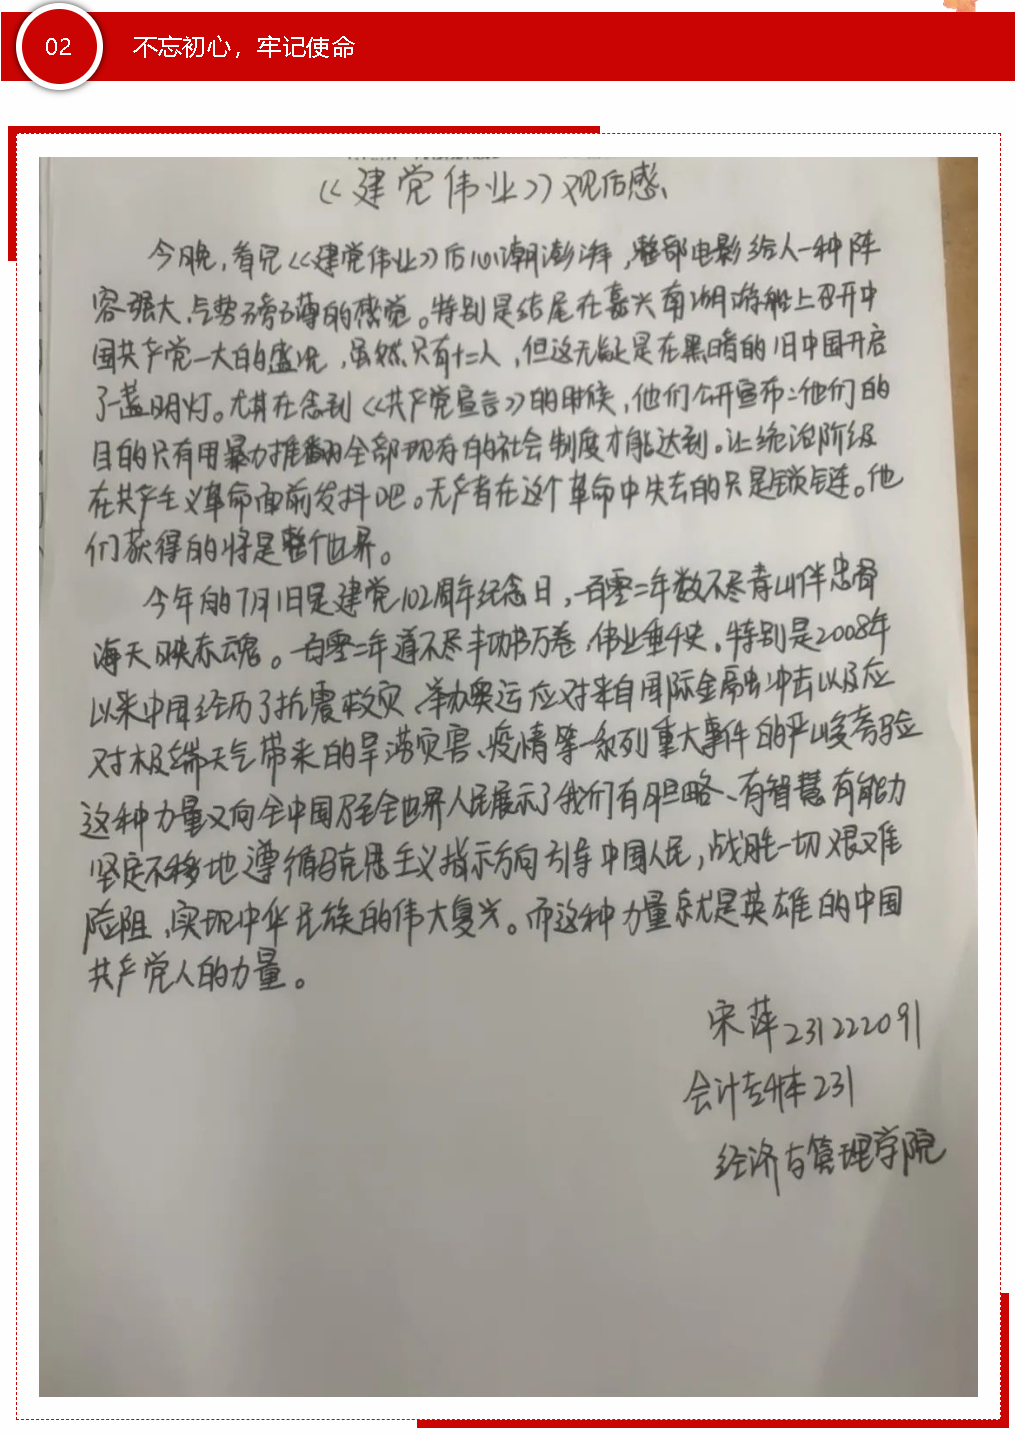 02
不忘初心，牢记使命
《建党伟业》观后感
今晚，看完《建党伟业》后心潮澎湃，整部电影给人一种阵
容强大、气势磅礴的感觉。特别是结尾在嘉兴南湖游船上召开中
国共产党一大的盛况，虽然只有十二人，但这无疑是在黑暗的旧中国开启
了一盏明灯。尤其在念到《共产党宣言》的时候，他们公开宣布：他们的
目的只有用暴力推翻全部现存的社会制度才能达到。让统治阶级
在共产主义革命面前发抖吧。无产者在这个革命中失去的只是锁链。他
们获得的将是整个世界。
今年的7月1日是建党102周年纪念日，一百零二年数不尽青山伴忠骨
海天映赤魂。一百零二年道不尽丰功书万卷，伟业垂千史。特别是2008年
以来中国经历了抗震救灾、举办奥运应对来自国际金融冲击以及应
对极端天气带来的旱涝灾害、疫情等一系列重大事件的严峻考验
这种力量又向全中国乃至全世界人民展示了我们有胆略、有智慧有能力
坚定不移地遵循马克思主义指示方向引导中国人民，战胜一切艰难
险阻，实现中华民族的伟大复兴。而这种力量就是英雄的中国
共产党人的力量。
宋萍231222091
会计专升本231
经济与管理学院